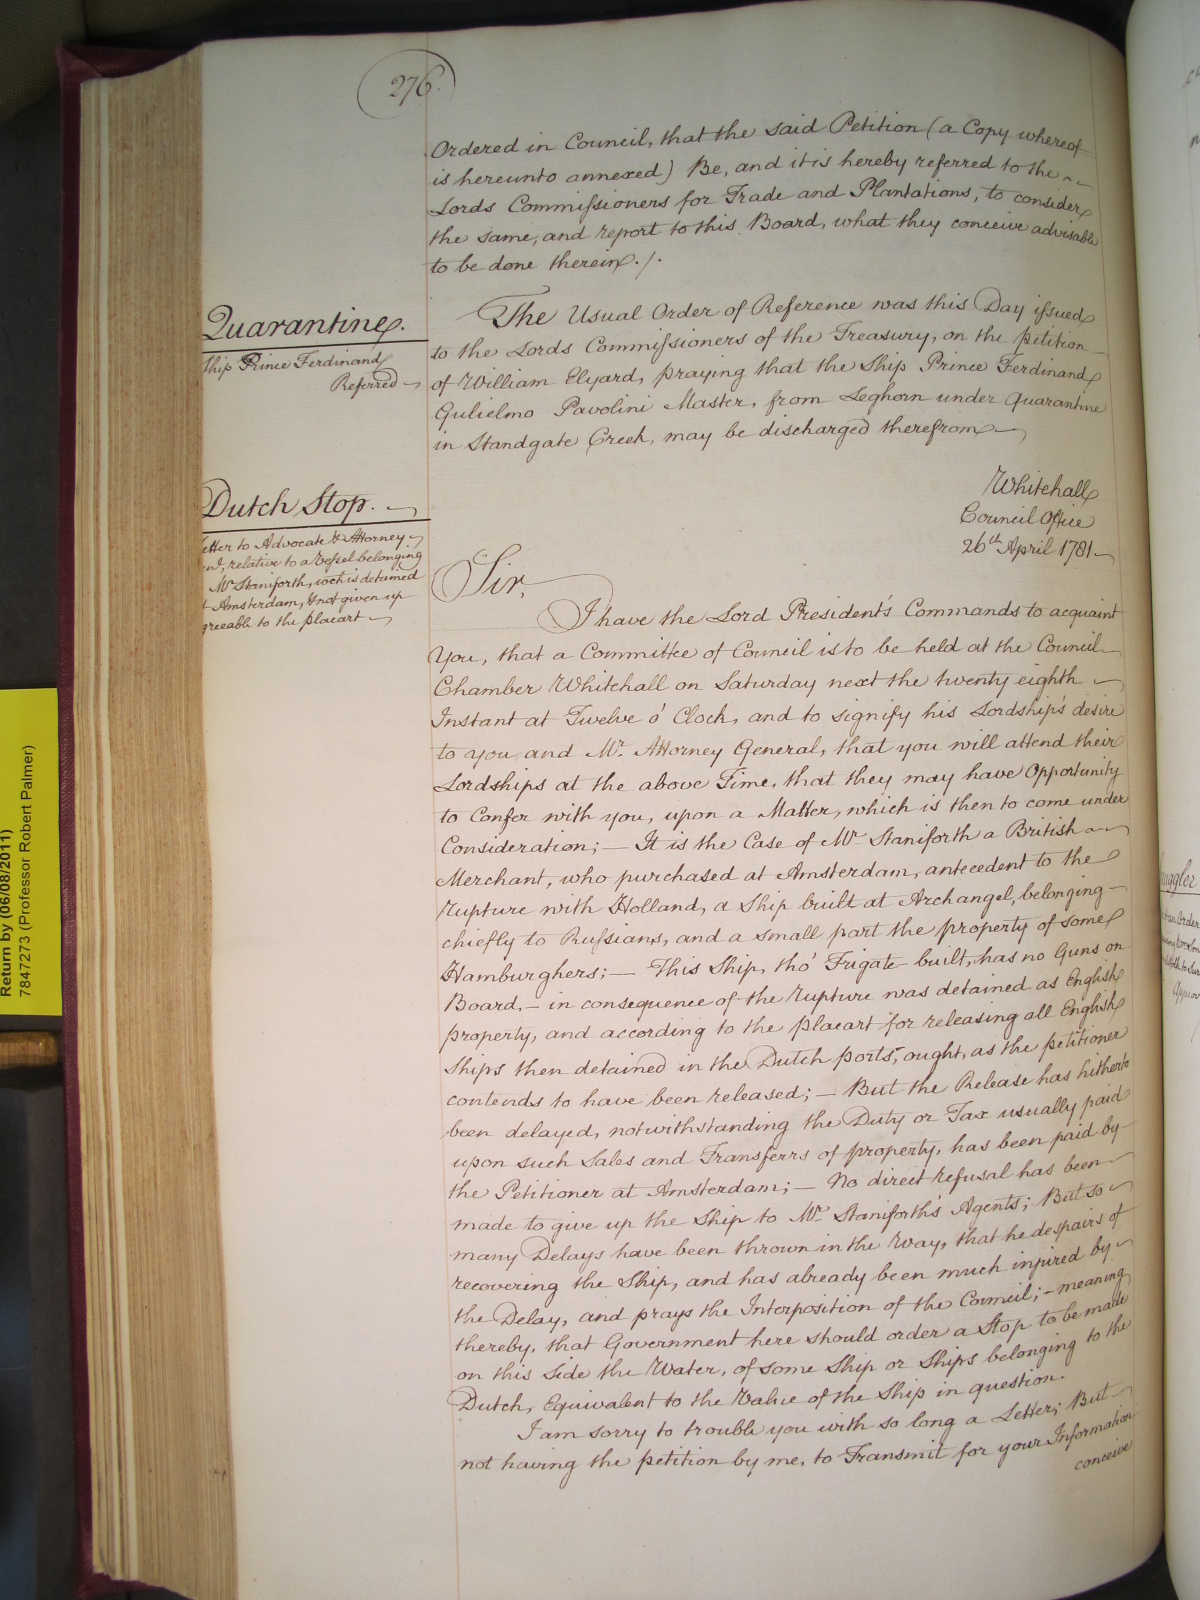 276.
Ordered in Council, that the said Petition (a Copy whereof
is hereunto annexed) Be, and it is hereby referred to the
Lords Commissioners for Trade and Plantations, to consider
the same, and report to this Board, what they conceive advisable
to be done therein./.
Quarantine.
Ship Prince Ferdinand
Referred
The Usual Order of Reference was this Day issued
to the Lords Commissioners of the Treasury, on the petition
of William Elyard, praying that the Ship Prince Ferdinand
Gulielmo Pavolini Master, from Leghorn under Quarantine
in Standgate Creek, may be discharged therefrom
Dutch Stop.
Letter to Advocate & Attorney
relative to a Vessel belonging
Mr Staniforth, wch is detained
Amsterdam, & not given up
greeable to the placart
Whitehall
Council Office
26th April 1781
Sir,
I have the Lord President's Commands to acquaint
You, that a Committee of Council is to be held at the Council
Chamber Whitehall on Saturday next the twenty eighth
Instant at Twelve o' Clock, and to signify his Lordship's desire
to you, and Mr. Attorney General, that you will attend their
Lordships at the above Time, that they may have Opportunity
to Confer with you, upon a Matter, which is then to come under
Consideration; — It is the Case of Mr Staniforth a British
Merchant, who purchased at Amsterdam, antecedent to the
Rupture with Holland, a Ship built at Archangel, belonging
chiefly to Russians, and a small part the property of some
Hamburghers; — This Ship, tho' Frigate built, has no Guns on
Board, — in consequence of the Rupture was detained as English
property, and according to the placart for releasing all English
Ships then detained in the Dutch ports, ought, as the petitioner
contends to have been released; — But the Release has hitherto
been delayed, notwithstanding the Duty or Tax usually paid
upon such Sales and Transferrs of property, has been paid by
the Petitioner at Amsterdam; — No direct refusal has been
made to give up the Ship to Mr. Staniforth's Agents; But so
many Delays have been thrown in the Way, that he despairs of
recovering the Ship, and has already been much injured by
the Delay, and prays the Interposition of the Council; — meaning
thereby, that Government here should order a Stop to be made
on this Side the Water, of some Ship or Ships belonging to the
Dutch, Equivalent to the Value of the Ship in question.
I am sorry to trouble you with so long a Letter; But
not having the petition by me, to Transmit for your Information
conceive
Return by (06/08/2011)
7847273 (Professor Robert Palmer)